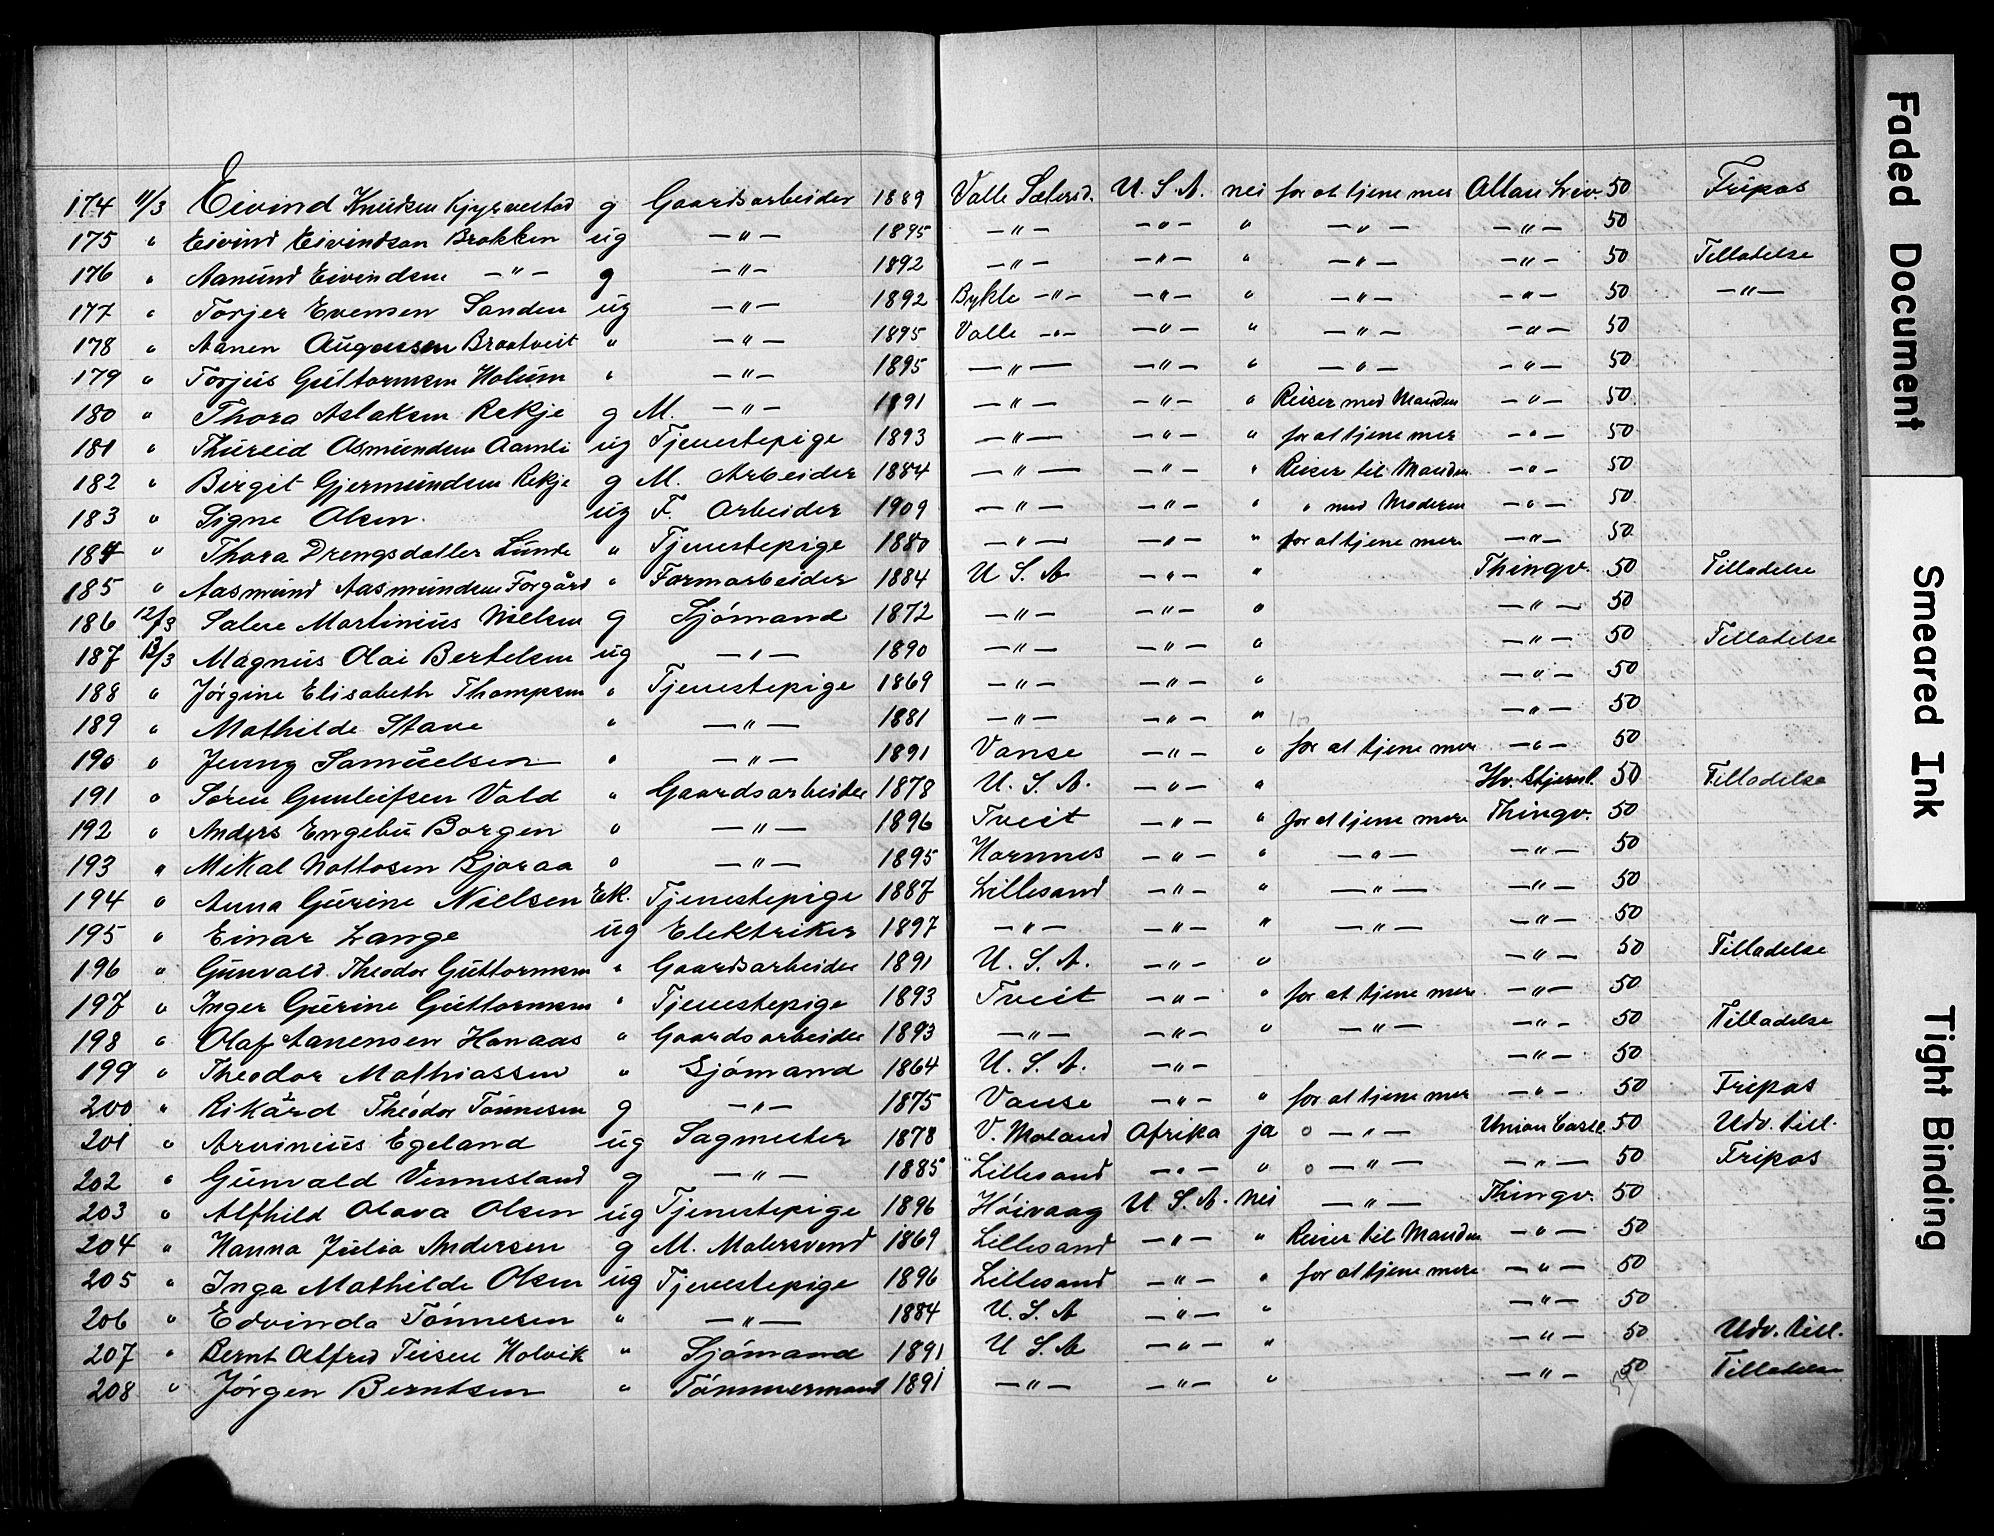 174 11/3 Eivind Knudsen Kjyrvestad g Gaardsarbeider 1889 Valle Sætersd. U. S. A. nei for at tjene mer Allan Liv. 50 Fripas
175 " Eivind Eivindsen Brokken ug —"— 1895 —"— —"— " —"— —"— 50
176 " Aanund Eivindsen —"— g —"— 1892 —"— —"— " —"— —"— 50 Tilladelse
177 " Torjer Evensen Sanden ug —"— 1892 Bykle —"— —"— " —"— —"— 50 —"—
178 " Aanen Augunssen Brootveit " —"— 1895 Valle —"— —"— " —"— —"— 50
179 " Torjus Guttormsen Holum " —"— 1895 —"— —"— " —"— —"— 50
180 " Thora Aslaksen Rekje g M. —"— 1891 —"— —"— " Reiser med Manden —"— 50
181 " Thureid Osmundsen Aamli ug Tjenestepige 1893 —"— —"— " for at tjene mer —"— 50
182 " Birgit Gjermundsen Rekje g M. Arbeider 1884 —"— —"— " Reiser til Manden —"— 50
183 " Signe Olsen ug F. Arbeider 1909 —"— —"— " " med Moderen —"— 50
184 " Thora Drengsdatter Lunde " Tjenestepige 1880 —"— —"— " for at tjene mere —"— 50
185 " Aasmund Aasmundsen Forgård " Farmarbeider 1884 U. S. A —"— " Thingv. 50 Tilladelse
186 12/3 Salve Martinius Nielsen g Sjömand 1872 —"— —"— " —"— 50
187 13/3 Magnus Olai Bertelsen ug —"— 1890 —"— —"— " —"— 50 Tilladelse
188 " Jörgine Elisabeth Thompsen " Tjenestepige 1869 —"— —"— " —"— 50
189 " Mathilde Stave " —"— 1881 —"— —"— " —"— 50
190 " Jenny Samuelsen " —"— 1891 Vanse —"— " for at tjene mer —"— 50
191 " Sören Gunleifsen Vold " Gaardsarbeider 1878 U. S. A. —"— " Hv. Stjernl. 50 Tilladelse
192 " Anders Engebu Borgen " —"— 1896 Tveit —"— " for at tjene mere Thingv. 50
193 " Mikal Nottosen Gjoraa " —"— 1895 Hornnes —"— " —"— —"— 50
194 " Anna Gurine Nielsen Ek. Tjenestepige 1887 Lillesand —"— " —"— —"— 50
195 " Einar Lange ug Elektriker 1897 —"— —"— " —"— —"— 50
196 " Gunvald Theodor Guttormsen " Gaardsarbeider 1891 U. S. A. —"— " —"— 50 Tilladelse
197 " Inger Gurine Guttormsen " Tjenestepige 1893 Tveit —"— " for at tjene mere —"— 50
198 " Olaf Aanensen Hanaas " Gaardsarbeider 1893 —"— —"— " —"— —"— 50 Tilladelse
199 " Theodor Mathiassen " Sjömand 1864 U. S. A. —"— —"— 50
200 " Rikård Theódor Tönnesen g —"— 1875 Vanse —"— " for at tjene mer —"— 50 Fripas
201 " Arvinius Egeland ug Sagmester 1878 V. Moland Afrika ja o —"— Union Castl. 50 Udv. till.
202 " Gunvald Vennesland g —"— 1885 Lillesand —"— " o —"— —"— 50 Fripas
203 " Alfhild Olava Olsen ug Tjenestepige 1896 Höivaag U. S. A. nei —"— Thingv. 50
204 " Hanna Julia Andersen g M. Malersvend 1869 Lillesand —"— " Reiser til Manden —"— 50
205 " Inga Mathilde Olsen ug Tjenestepige 1896 Lillesand —"— " for at tjene mere —"— 50
206 " Edvinda Tönnesen " —"— 1884 U. S. A —"— " —"— 50
207 " Bernt Alfred Teisen Holvik " Sjömand 1891 U. S. A —"— " —"— 50 Udv. till.
208 " Jörgen Berntsen " Tömmermand 1891 —"— —"— " —"— 50 Tilladelse
Faded Document
Smeared Ink
Tight Binding